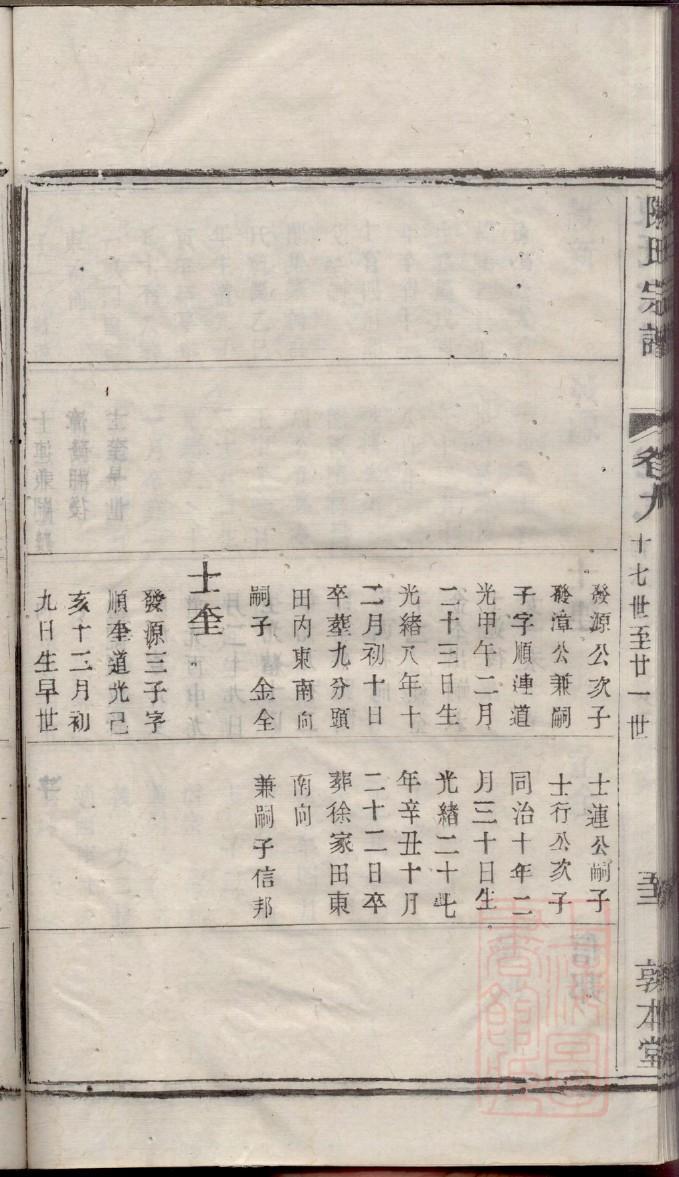 陳氏宗譜
卷九
十七世至廿一世
敦本堂
發源公次子
發漳公兼嗣
子字順連道
光甲午二月
二十三日生
光緒八年十
二月初十日
卒葬九分頭
田內東南向
嗣子 金全
士奎
發源三子字
順奎道光己
亥十二月初
九日生早世
士連公嗣子
士行公次子
同治十年二
月三十日生
光緒二十七
年辛丑十月
二十二日卒
葬徐家田東
南向
兼嗣子信邦